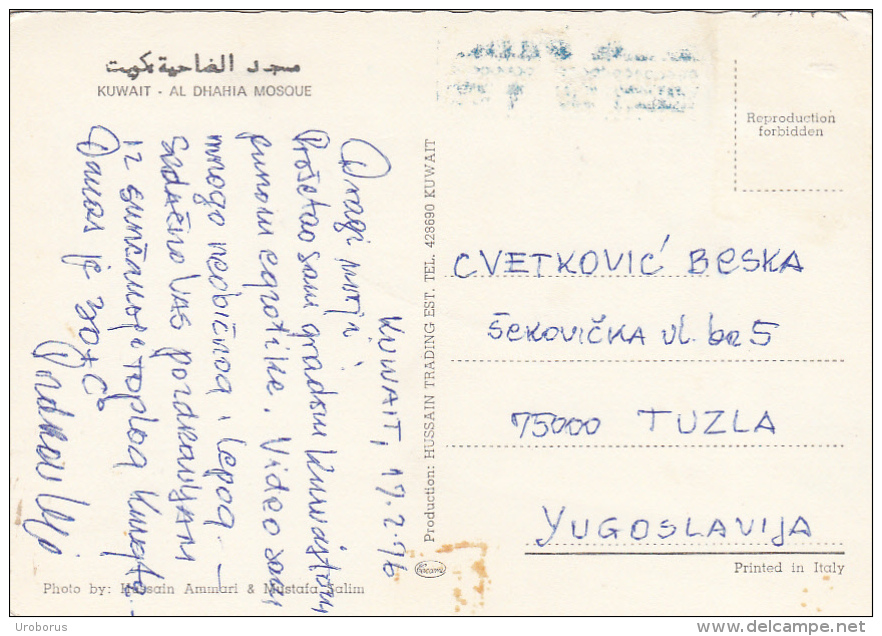 مسجد الضاحية بكويت
KUWAIT - AL DHAHIA MOSQUE
KUWAIT, 17.2.76
Dragi moji!
Prošetao sam gradom Kuwaitom,
punom egzotike. Video sam
mnogo neobičnog i lepog. —
Srdačno VAS pozdravljam
iz sunčanoga toplog Kuwajta.
Danas je +30°C
Photo by: Hussain Ammari & Mustafa Salim
Production: HUSSAIN TRADING EST. TEL. 428690 KUWAIT
Reproduction
forbidden
CVETKOVIĆ BESKA
ŠEKOVIČKA ul. br 5
75000 TUZLA
YUGOSLAVIJA
Printed in Italy
Uroborus
delcampe.net